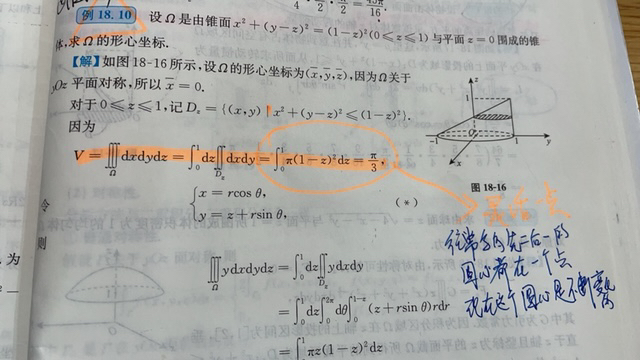 例 18.10 设 Ω 是由锥面 x² + (y − z)² = (1 − z)² (0 ≤ z ≤ 1) 与平面 z = 0 围成的锥
体,求 Ω 的形心坐标.
【解】如图 18-16 所示,设 Ω 的形心坐标为 (x̄, ȳ, z̄),因为 Ω 关于
yOz 平面对称,所以 x̄ = 0.
对于 0 ≤ z ≤ 1,记 D_z = {(x,y) | x² + (y − z)² ≤ (1 − z)²}.
因为
V = ∭_Ω dxdydz = ∫₀¹ dz ∬_{D_z} dxdy = ∫₀¹ π(1 − z)² dz = π/3,
{ x = rcos θ,
y = z + rsin θ, (*)
∭_Ω ydxdydz = ∫₀¹ dz ∬_{D_z} ydxdy
= ∫₀¹ dz ∫₀^{2π} dθ ∫₀^{1−z} (z + rsin θ)rdr
= ∫₀¹ πz(1 − z)² dz
z
1
O
1
y
x
图 18-16
圆心都在一个点
现在这个圆心是不断变
令
则
为